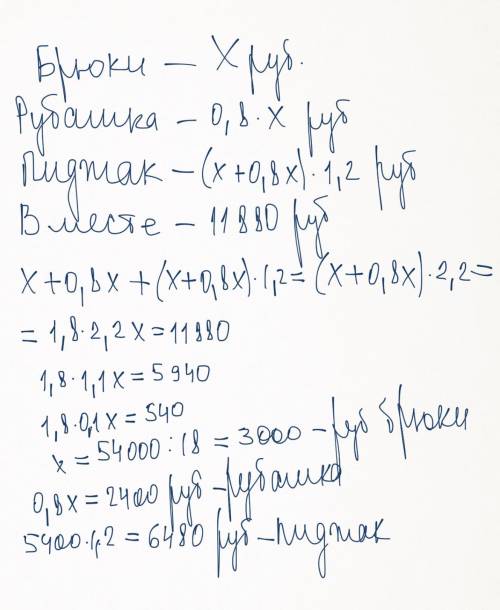 Брюки – X руб.
Рубашка – 0,8·x руб
Пиджак – (x+0,8x)·1,2 руб
Вместе – 11880 руб
x+0,8x+(x+0,8x)·1,2=(x+0,8x)·2,2=
=1,8·2,2x=11880
1,8·1,1x=5940
1,8·0,1x=540
x=54000:18=3000 – руб брюки
0,8x=2400 руб – рубашка
5400·1,2=6480 руб – пиджак